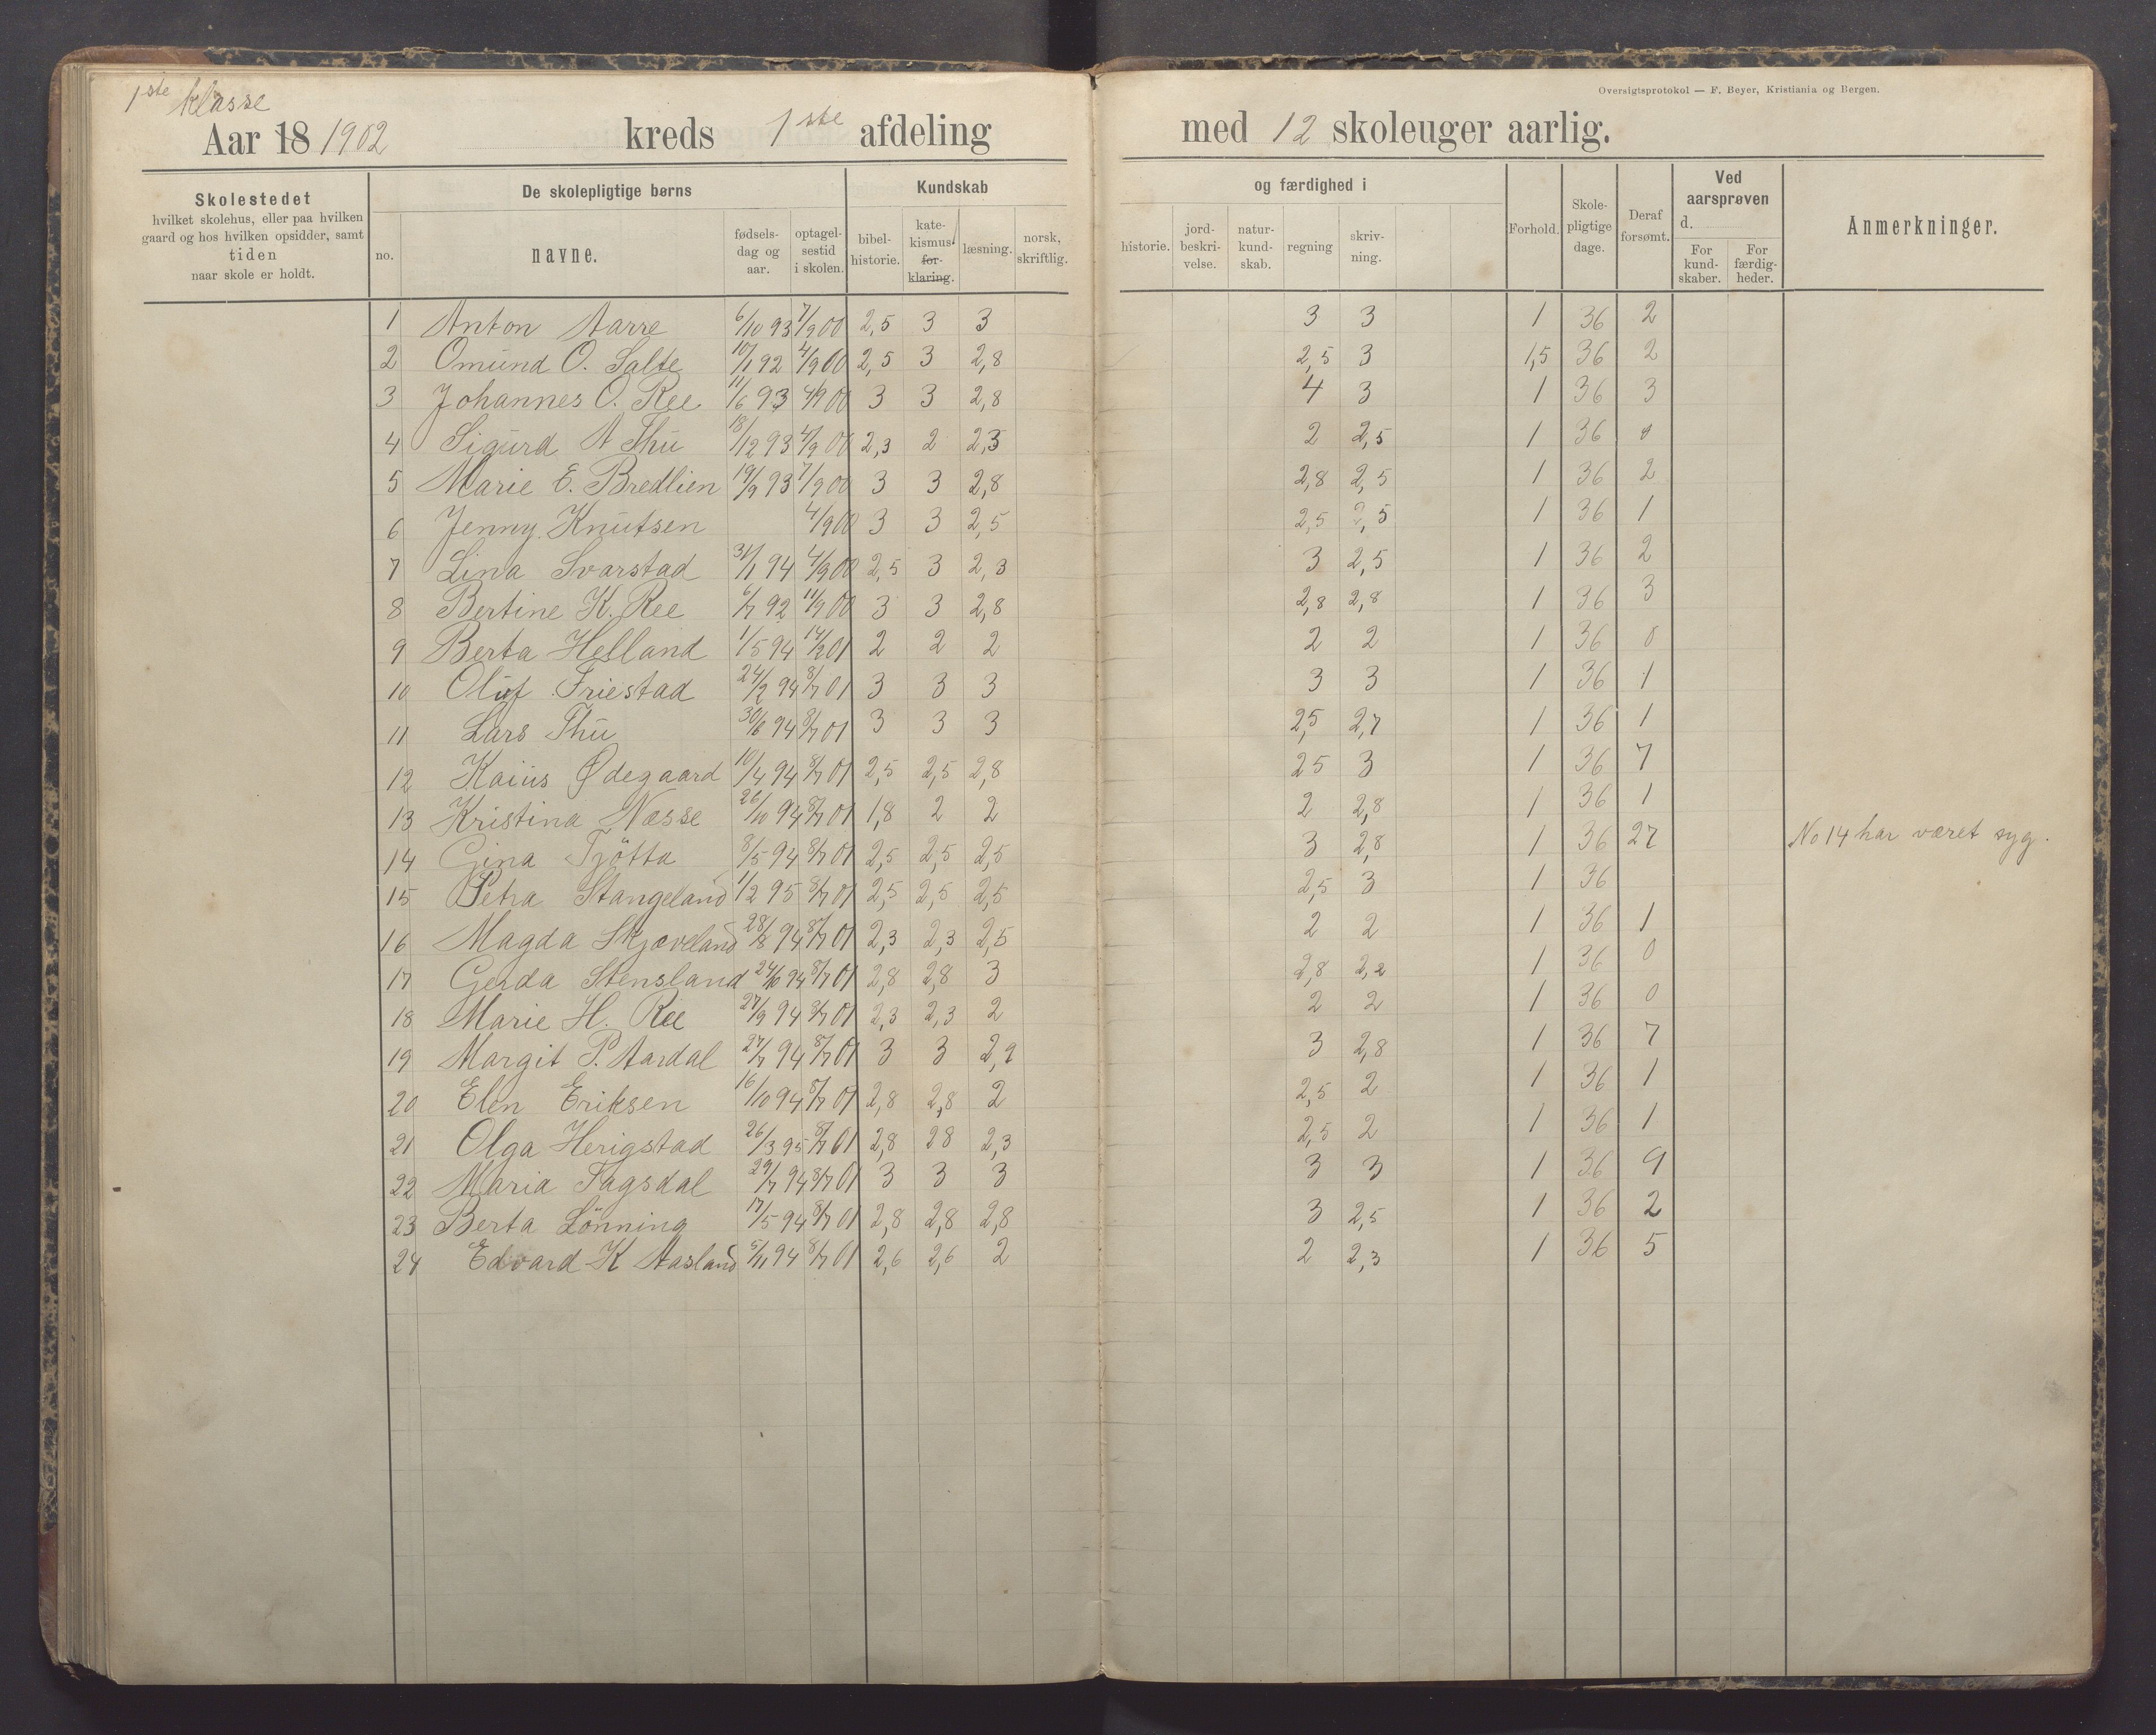 1ste klasse
Oversigtsprotokol — F. Beyer, Kristiania og Bergen.
Aar 18 1902 kreds 1ste afdeling med 12 skoleuger aarlig.
Skolestedet
hvilket skolehus, eller paa hvilken
gaard og hos hvilken opsidder, samt
tiden
naar skole er holdt.
De skolepligtige børns
no.
navne.
fødsels-
dag og
aar.
optagel-
sestid
i skolen.
Kundskab
bibel-
historie.
kate-
kismus
for-
klaring.
læsning.
norsk,
skriftlig.
og færdighed i
historie.
jord-
beskri-
velse.
natur-
kund-
skab.
regning
skriv-
ning.
Forhold.
Skole-
pligtige
dage.
Deraf
forsømt.
Ved
aarsprøven
d.
For
kund-
skaber.
For
færdig-
heder.
Anmerkninger.
1 Anton Aarre 6/10 93 7/9 00 2,5 3 3 3 3 1 36 2
2 Omund O. Salte 10/1 92 4/9 00 2,5 3 2,8 2,5 3 1,5 36 2
3 Johannes O. Ree 11/6 93 4/9 00 3 3 2,8 4 3 1 36 3
4 Sigurd A Thu 18/12 93 4/9 00 2,3 2 2,3 2 2,5 1 36
5 Marie E. Bredlien 19/9 93 7/9 00 3 3 2,8 2,8 2,5 1 36 2
6 Jenny Knutsen 4/9 00 3 3 2,5 2,5 2,5 1 36 1
7 Lina Svarstad 31/1 94 4/9 00 2,5 3 2,3 3 2,5 1 36 2
8 Bertine K. Ree 6/7 92 11/9 00 3 3 2,8 2,8 2,8 1 36 3
9 Berta Helland 1/5 94 14/2 01 2 2 2 2 2 1 36 0
10 Oluf Friestad 24/2 94 8/7 01 3 3 3 3 3 1 36 1
11 Lars Thu 30/6 94 8/7 01 3 3 3 2,5 2,7 1 36 1
12 Kaius Ødegaard 10/4 94 8/7 01 2,5 2,5 2,8 25 3 1 36 7
13 Kristina Næsse 26/10 94 8/7 01 1,8 2 2 2 2,8 1 36 1
14 Gina Tjötta 8/5 94 8/7 01 2,5 2,5 2,5 3 2,8 1 36 27 No 14 har været syg.
15 Petra Stangeland 11/2 95 8/7 01 2,5 2,5 2,5 2,5 3 1 36
16 Magda Skjæveland 28/8 94 8/7 01 2,3 2,3 2,5 2 2 1 36 1
17 Gerda Stensland 24/6 94 8/7 01 2,8 2,8 3 2,8 2,2 1 36 0
18 Marie H. Ree 27/9 94 8/7 01 2,3 2,3 2 2 2 1 36 0
19 Margit P. Aardal 27/7 94 8/7 01 3 3 2,9 3 2,8 1 36 7
20 Elen Eriksen 16/10 94 8/7 01 2,8 2,8 2 2,5 2 1 36 1
21 Olga Herigstad 26/3 95 8/7 01 2,8 28 2,3 2,5 2 1 36 1
22 Maria Fagsdal 29/7 94 8/7 01 3 3 3 3 3 1 36 9
23 Berta Lönning 17/5 94 8/7 01 2,8 2,8 2,8 3 2,5 1 36 2
24 Edvard K Aasland 5/11 94 8/7 01 2,6 2,6 2 2 2,3 1 36 5